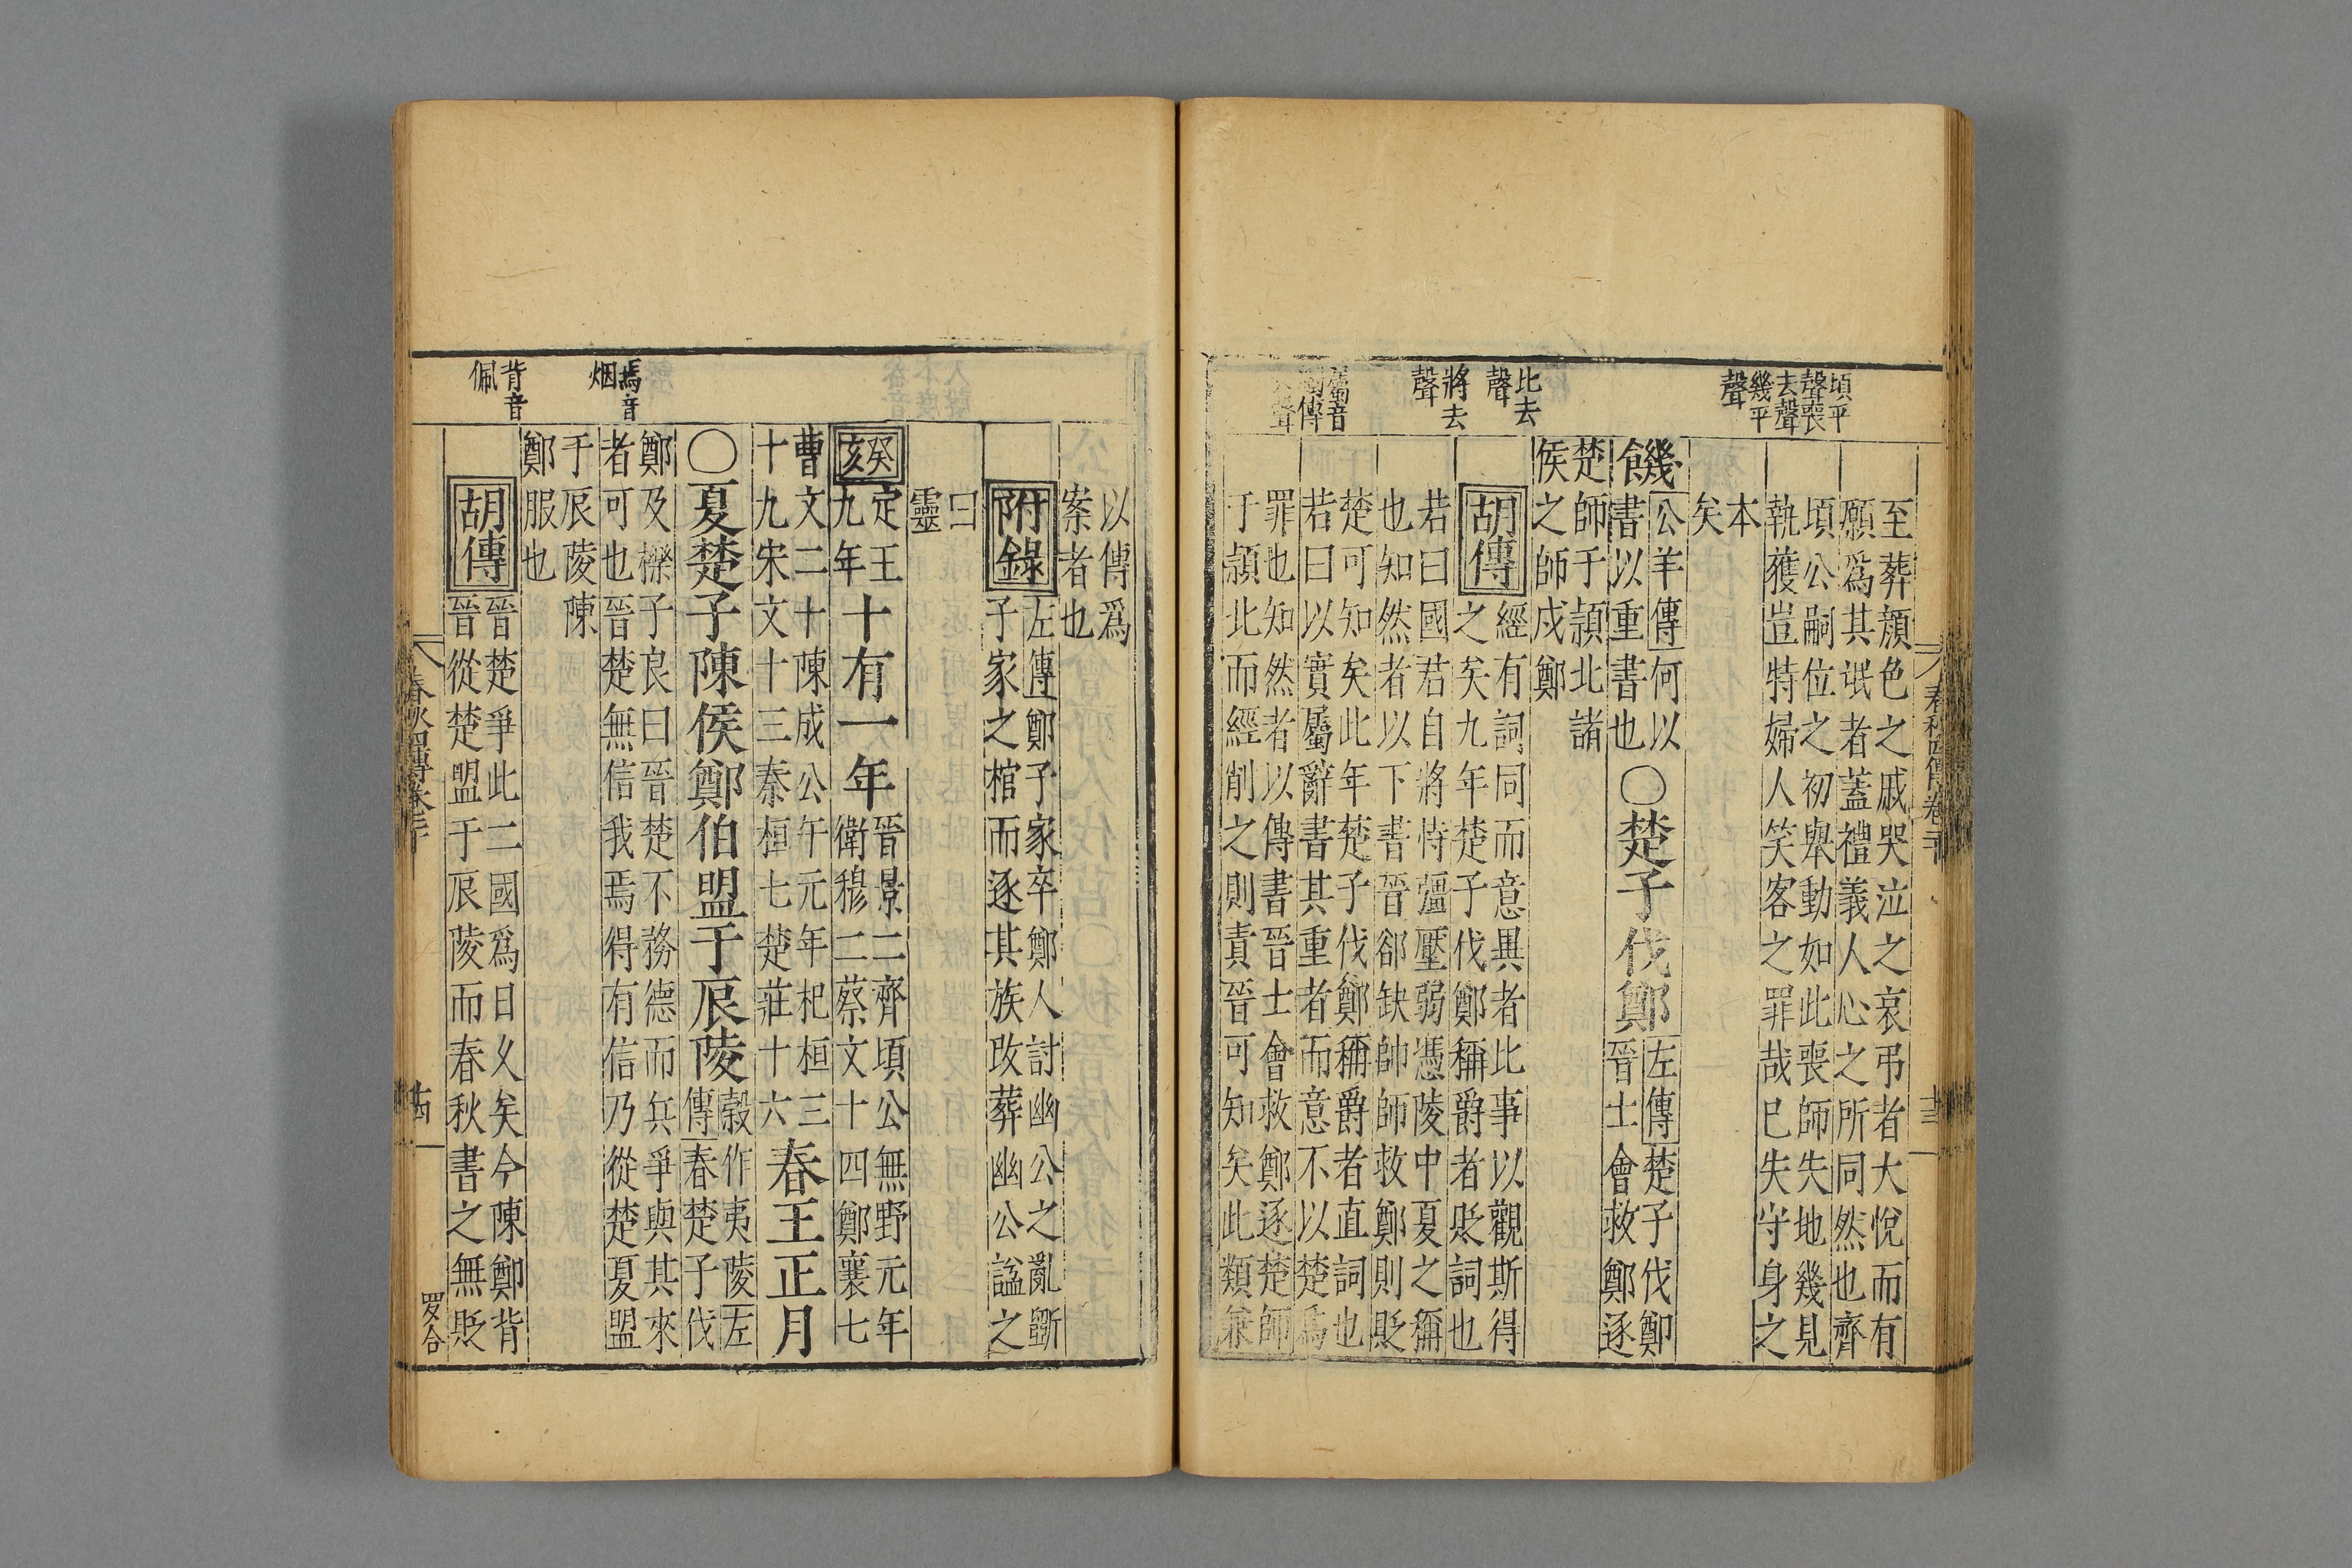 頃平
聲喪
去聲
幾平
聲
比去
聲
將去
聲
屬音
至葬顏色之戚哭泣之哀弔者大悅而有
願爲其氓者蓋禮義人心之所同然也齊
頃公嗣位之初舉動如此喪師失地幾見
執獲豈特婦人笑客之罪哉已失守身之
本
矣
饑
公羊傳何以
書以重書也
〇楚子伐鄭
左傳楚子伐鄭
晉士會救鄭逐
楚師于潁北諸
侯之師戍鄭
胡傳
經有詞同而意異者比事以觀斯得
之矣九年楚子伐鄭稱爵者貶詞也
若曰國君自將恃彊壓弱憑陵中夏之稱
也知然者以下書晉郤缺帥師救鄭則貶
楚可知矣此年楚子伐鄭稱爵者直詞也
若曰以實屬辭書其重者而意不以楚爲
罪也知然者以傳書晉士會救鄭逐楚師
于潁北而經削之則責晉可知矣此類兼
春秋四傳卷二十
十三
以傳爲
案者也
附錄
左傳鄭子家卒鄭人討幽公之亂斲
子家之棺而逐其族改葬幽公謚之
曰
靈
癸亥
定王
九年
十有一年
晉景二齊頃公無野元年
衛穆二蔡文十四鄭襄七
曹文二十陳成公午元年杞桓三
十九宋文十三秦桓七楚莊十六
春王正月
〇夏楚子陳侯鄭伯盟于辰陵
穀作夷陵左
傳春楚子伐
鄭及櫟子良曰晉楚不務德而兵爭與其來
者可也晉楚無信我焉得有信乃從楚夏盟
于辰陵陳
鄭服也
胡傳
晉楚爭此二國爲日久矣今陳鄭背
晉從楚盟于辰陵而春秋書之無貶
焉音
烟
背音
佩
春秋四傳卷二十
十四
罗合